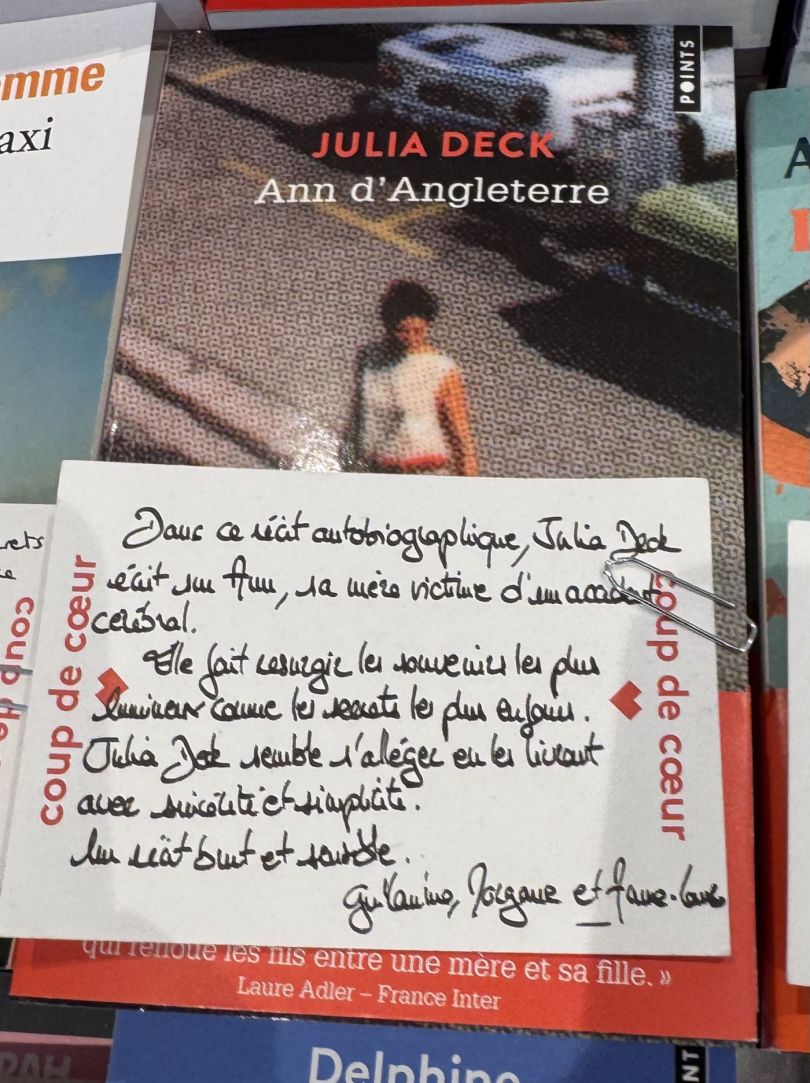 omme
axi
POINTS
JULIA DECK
Ann d'Angleterre
Dans ce récit autobiographique, Julia Deck
écrit sur Ann, sa mère victime d'un accident
cérébral.
Elle fait resurgir les souvenirs les plus
lumineux comme les secrets les plus enfouis.
Julia Deck semble s'alléger en les livrant
avec sincérité et simplicité.
Un récit brut et sensible.
Morgane et Anne-Laure
coup de cœur
coup de cœur
rets
coup de
qui renoue les fils entre une mère et sa fille. »
Laure Adler – France Inter
Delphine
NT